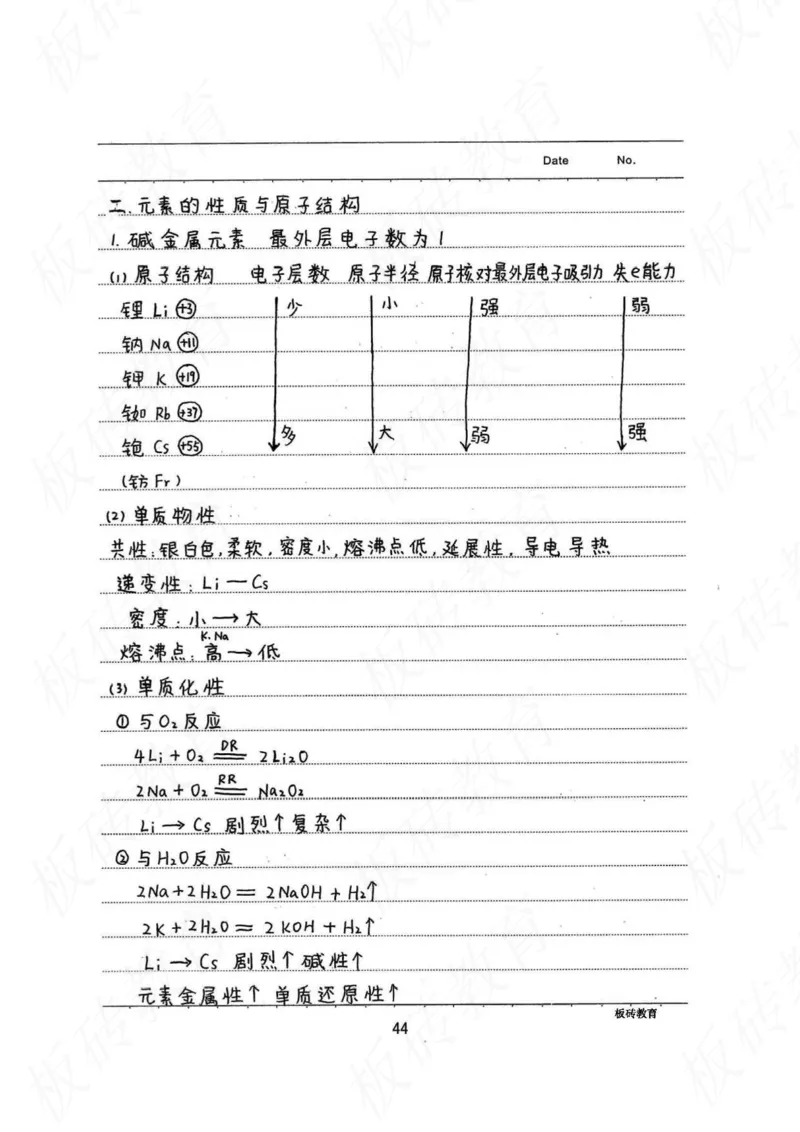 Date No.
二.元素的性质与原子结构
1.碱金属元素 最外层电子数为1
(1)原子结构 电子层数 原子半径 原子核对最外层电子吸引力 失e能力
锂 Li +3 少 小 强 弱
钠 Na +11
钾 K +19
铷 Rb +37
铯 Cs +55 多 大 弱 强
(钫 Fr)
(2)单质物性
共性:银白色,柔软,密度小,熔沸点低,延展性,导电导热
递变性:Li—Cs
密度:小→大
K.Na
熔沸点:高→低
(3)单质化性
①与O₂反应
4Li+O₂ DR══ 2Li₂O
2Na+O₂ RR══ Na₂O₂
Li→Cs 剧烈↑复杂↑
②与H₂O反应
2Na+2H₂O══2NaOH+H₂↑
2K+2H₂O══2KOH+H₂↑
Li→Cs 剧烈↑碱性↑
元素金属性↑ 单质还原性↑
板砖教育
44